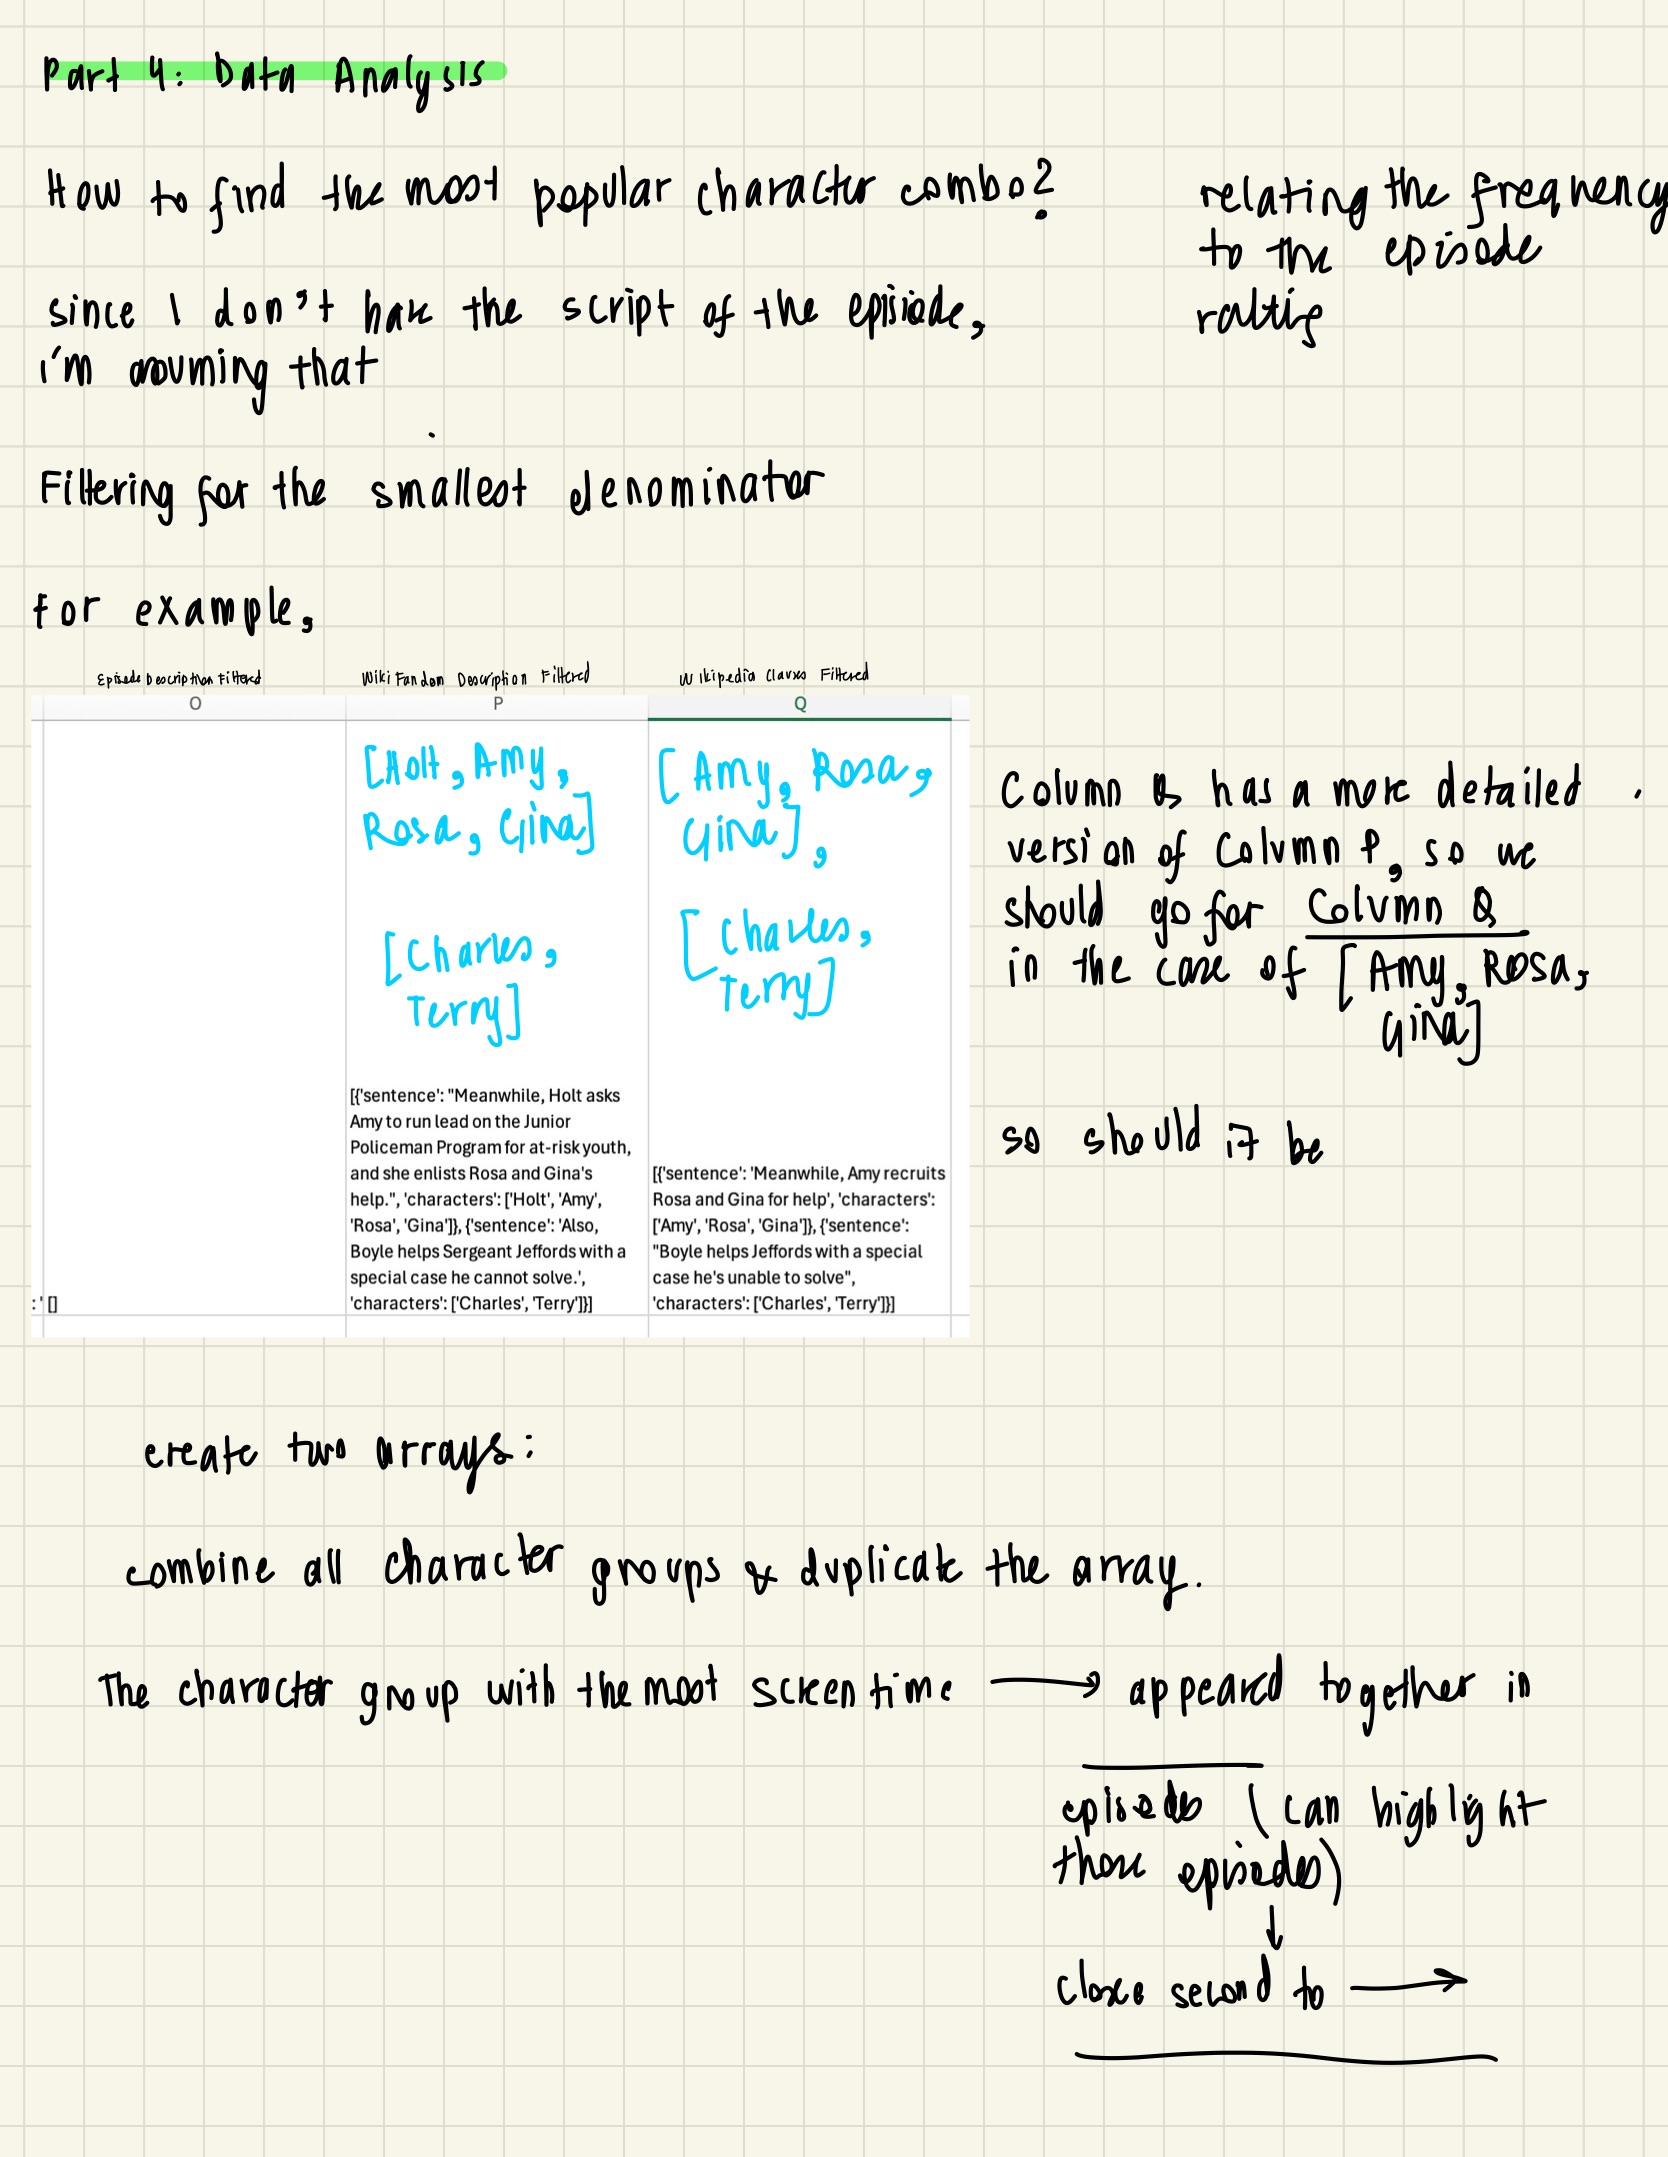 Part 4: Data Analysis
How to find the most popular character combo?
relating the frequency
to the episode
rating
since I don't have the script of the episiode,
i'm assuming that
Filtering for the smallest denominator
for example,
Episode Description Filtered
Wiki Fandom Description Filtered
Wikipedia Clauses Filtered
O
P
Q
[Holt, Amy,
Rosa, Gina]
[Charles,
Terry]
[Amy, Rosa,
Gina],
[Charles,
Terry]
: ' []
[{'sentence': "Meanwhile, Holt asks
Amy to run lead on the Junior
Policeman Program for at-risk youth,
and she enlists Rosa and Gina's
help.", 'characters': ['Holt', 'Amy',
'Rosa', 'Gina']}, {'sentence': 'Also,
Boyle helps Sergeant Jeffords with a
special case he cannot solve.',
'characters': ['Charles', 'Terry']}]
[{'sentence': 'Meanwhile, Amy recruits
Rosa and Gina for help', 'characters':
['Amy', 'Rosa', 'Gina']}, {'sentence':
"Boyle helps Jeffords with a special
case he's unable to solve",
'characters': ['Charles', 'Terry']}]
Column Q has a more detailed
version of Column P, so we
should go for Column Q
in the case of [Amy, Rosa,
Gina]
so should it be
create two arrays:
combine all character groups & duplicate the array.
The character group with the most screen time → appeared together in
episodes (can highlight
those episodes)
↓
close second to →